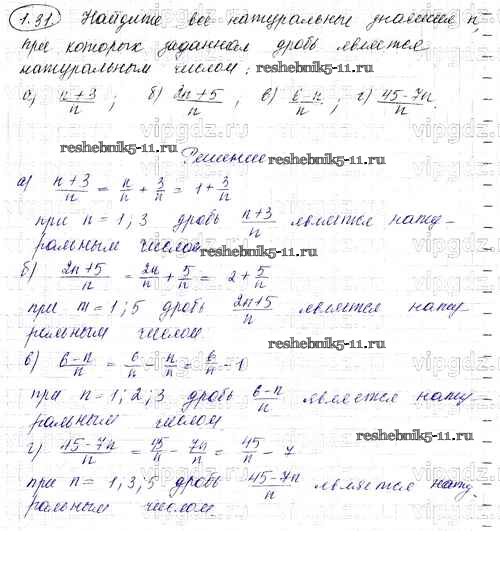 1.31) Найдите все натуральные значения n,
при которых заданная дробь является
натуральным числом:
reshebnik5-11.ru
а) (n+3)/n ; б) (2n+5)/n , в) (6-n)/n ; г) (45-7n)/n.
vipgdz.com
reshebnik5-11.ru
Решение
а) (n+3)/n = n/n + 3/n = 1 + 3/n
при n = 1; 3 дробь (n+3)/n является нату-
ральным числом.
reshebnik5-11.ru
б) (2n+5)/n = 2n/n + 5/n = 2 + 5/n
при m = 1; 5 дробь (2n+5)/n является нату-
ральным числом.
reshebnik5-11.ru
в) (6-n)/n = 6/n - n/n = 6/n - 1
при n = 1; 2; 3 дробь (6-n)/n является нату
ральным числом.
reshebnik5-11.ru
г) (45-7n)/n = 45/n - 7n/n = 45/n - 7
при n = 1, 3; 5 дробь (45-7n)/n является нату.
ральным числом.